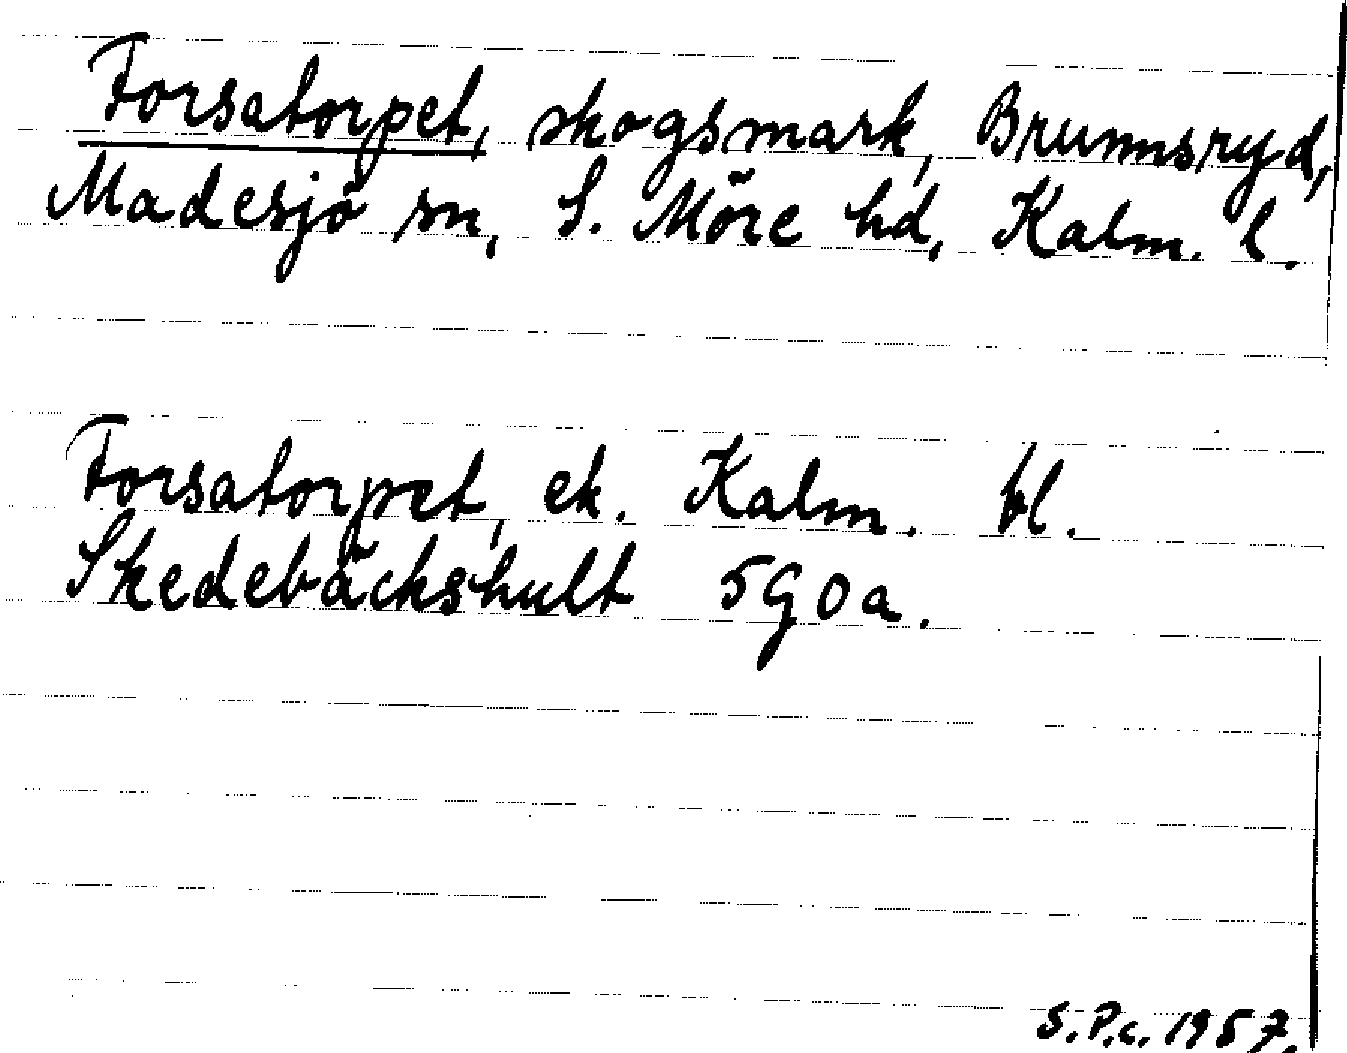 Forsatorpet, skogsmark, Brunnsryd,
Madesjö sn, S. Möre hd, Kalm. l.
Forsatorpet, ek. Kalm. bl.
Skedebäckshult 5G0a.
S.P.c. 1957.